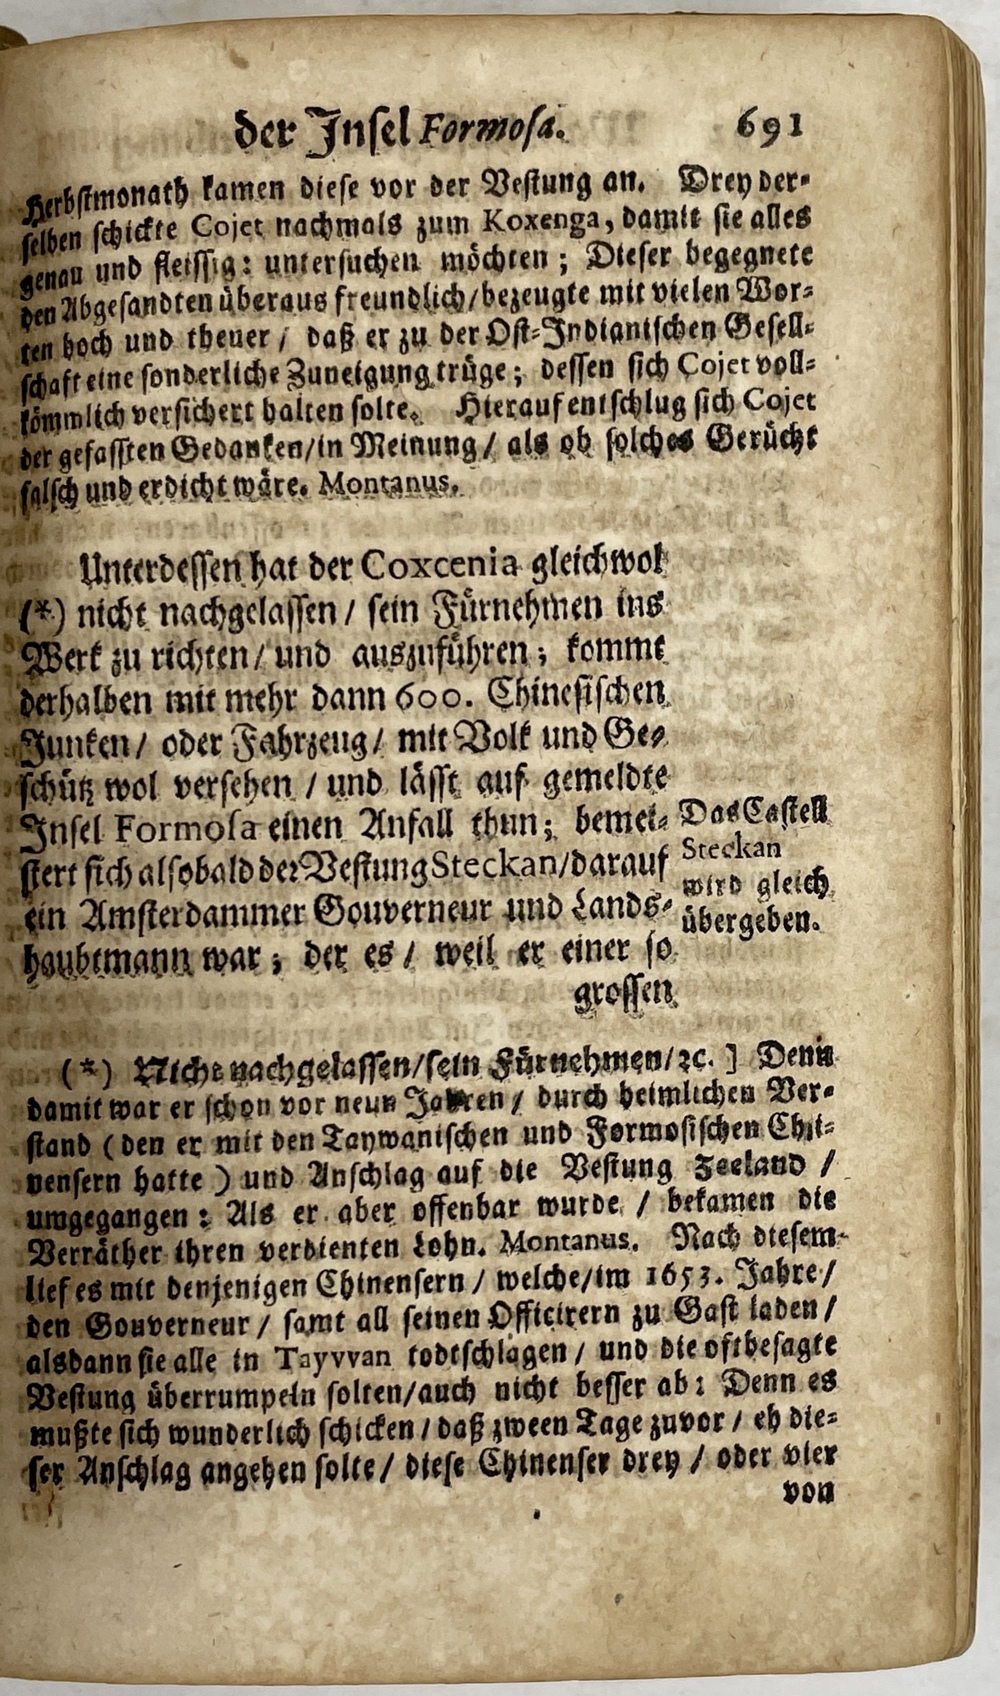 der Jnsel Formosa. 691
Herbstmonath kamen diese vor der Vestung an. Drey der-
selben schickte Cojet nachmals zum Koxenga, damit sie alles
genau und fleissig: untersuchen möchten; Dieser begegnete
den Abgesandten überaus freundlich/bezeugte mit vielen Wor-
ten hoch und theuer/ daß er zu der Ost-Jndianischen Gesell-
schaft eine sonderliche Zuneigung trüge; dessen sich Cojet voll-
kömmlich versichert halten solte. Hierauf entschlug sich Cojet
der gefassten Gedanken/in Meinung/ als ob solches Gerücht
falsch und erdicht wäre. Montanus.
Unterdessen hat der Coxcenia gleichwol
(*) nicht nachgelassen/ sein Fürnehmen ins
Werk zu richten/ und auszuführen; kommt
derhalben mit mehr dann 600. Chinesischen
Junken/ oder Fahrzeug/ mit Volk und Ge-
schütz wol versehen/ und lässt auf gemeldte
Jnsel Formosa einen Anfall thun; bemei-
stert sich alsobald der Vestung Steckan/darauf
ein Amsterdammer Gouverneur und Lands-
haubtmann war; der es/ weil er einer so
grossen
Das Castell
Steckan
wird gleich
übergeben.
(*) Nicht nachgelassen/sein Fürnehmen/ꝛc.] Denn
damit war er schon vor neun Jahren/ durch heimlichen Ver-
stand (den er mit den Taywanischen und Formosischen Chi-
nensern hatte) und Anschlag auf die Vestung Seeland/
umgegangen: Als er aber offenbar wurde/ bekamen die
Verräther ihren verdienten Lohn. Montanus. Nach diesem
lief es mit denjenigen Chinensern/ welche/im 1653. Jahre/
den Gouverneur/ samt all seinen Officirern zu Gast laden/
alsdann sie alle in Tayvvan todtschlagen/ und die oftbesagte
Vestung überrumpeln solten/auch nicht besser ab: Denn es
mußte sich wunderlich schicken/daß zween Tage zuvor/ eh die-
ser Anschlag angehen solte/ diese Chinenser drey/ oder vier
von